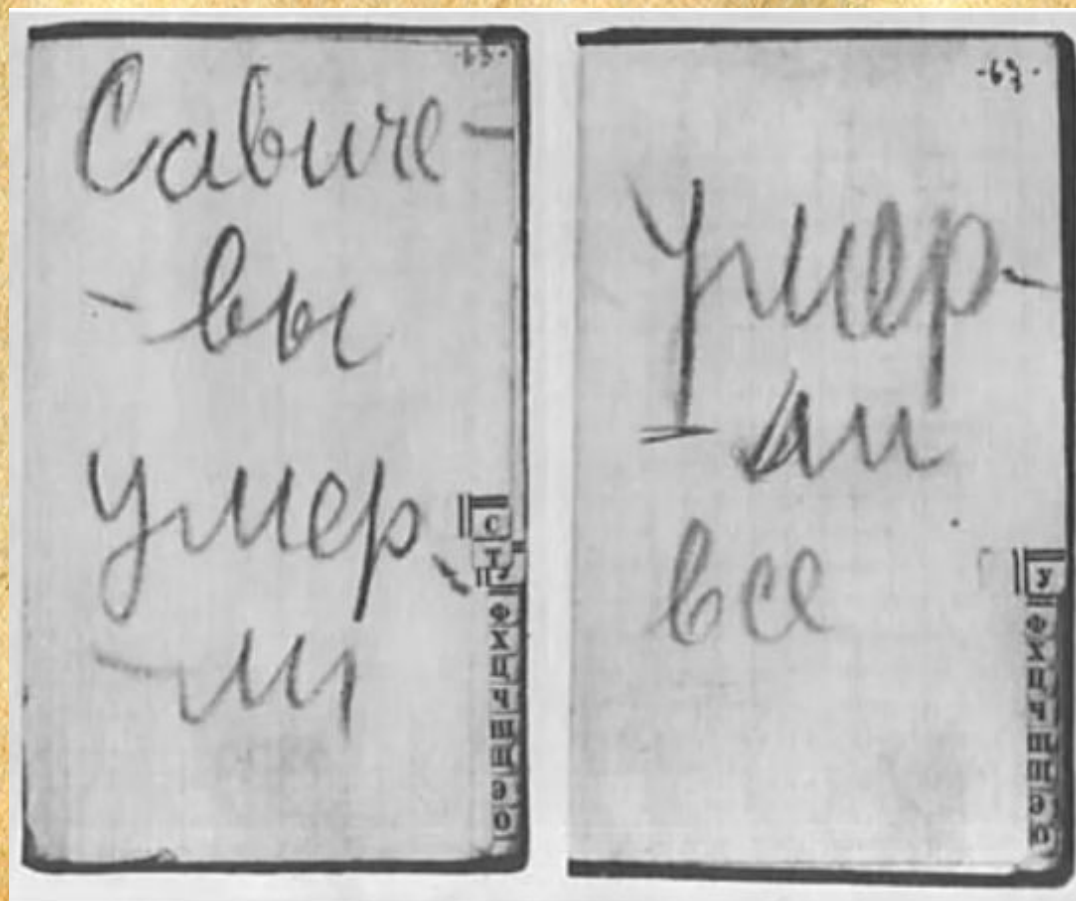 -63-
Савиче-
-вы
умер-
-ли
С
Т
У
Ф
Х
Ц
Ч
Ш
Щ
Э
Ю
-67-
Умер-
-ли
все
У
Ф
Х
Ц
Ч
Ш
Щ
Э
Ю